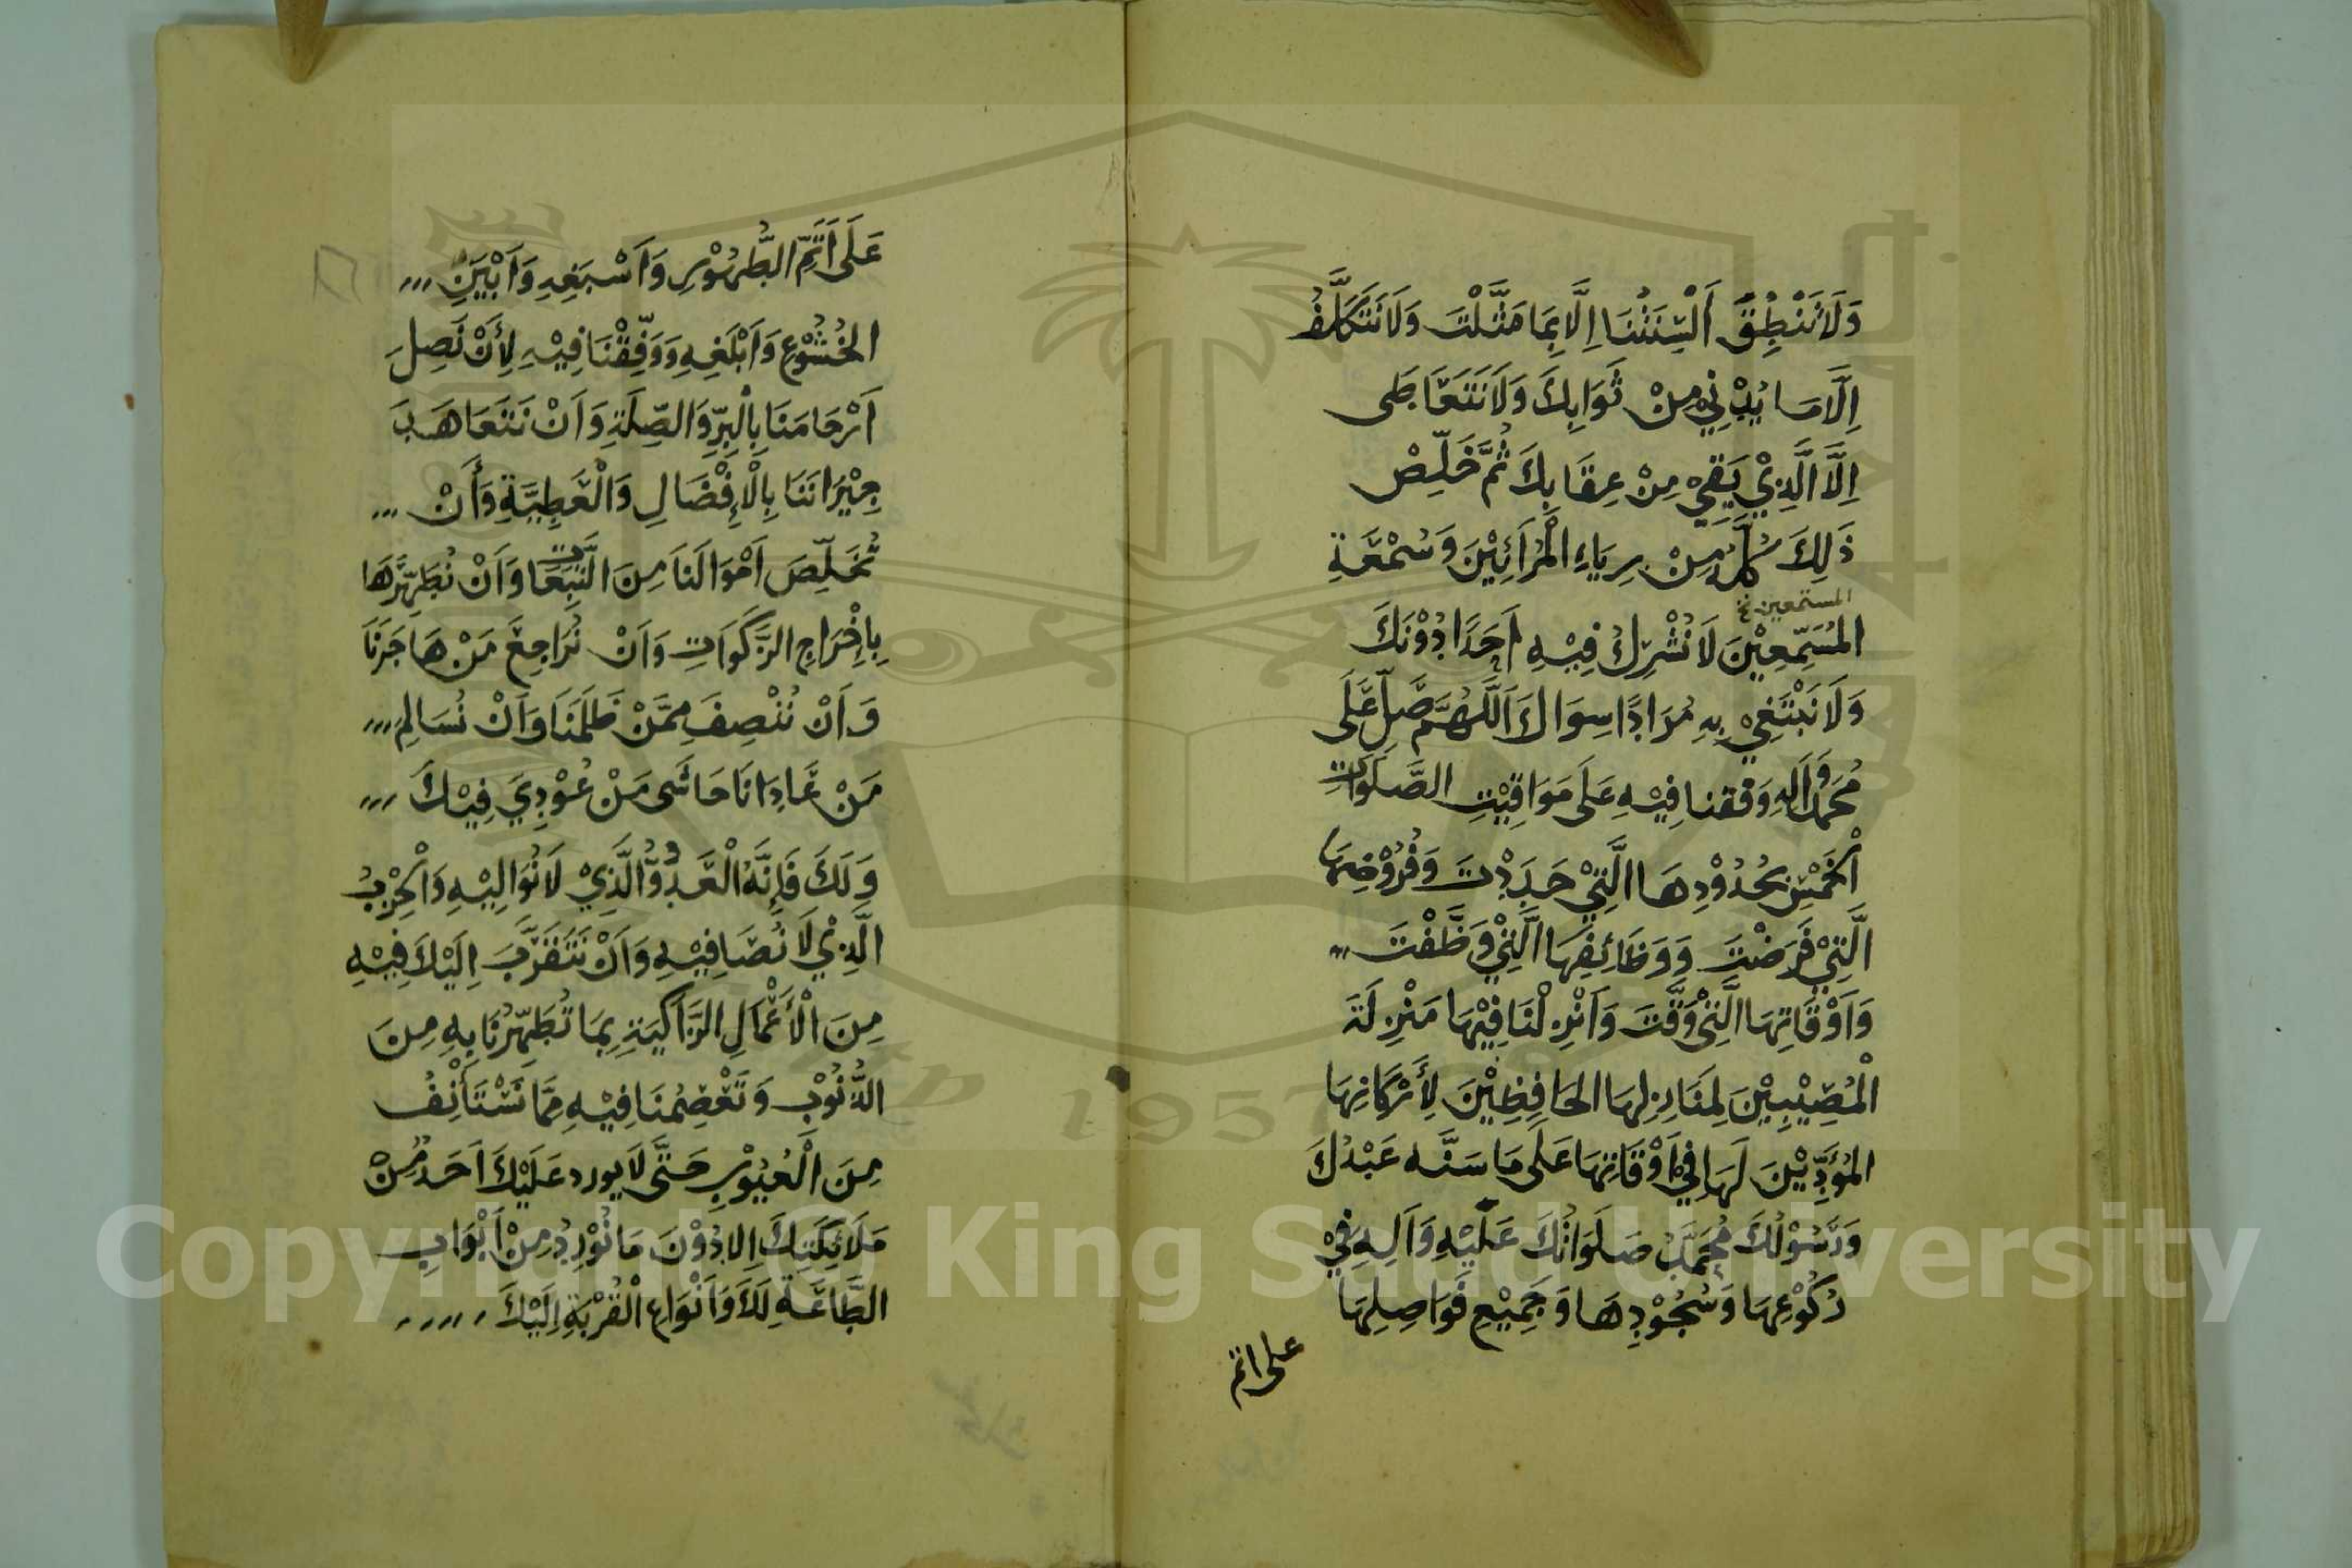 وَلَا تَنْطِقَ أَلْسِنَتُنَا اِلَّا بِمَا مَثَّلْتَ وَلَا نَتَكَلَّفُ
اِلَّا مَا يُدْنِيْ مِنْ ثَوَابِكَ وَلَا نَتَعَاطَى
اِلَّا الَّذِيْ يَقِيْ مِنْ عِقَابِكَ ثُمَّ خَلِّصْ
ذَلِكَ كُلَّهُ مِنْ رِيَاءِ الْمُرَائِيْنَ وَسُمْعَةِ
المستمعين خ
المُسَمِّعِيْنَ لَا نُشْرِكُ فِيْهِ اَحَدًا دُوْنَكَ
وَلَا نَبْتَغِيْ بِهِ مُرَادًا سِوَاكَ اَللَّهُمَّ صَلِّ عَلَى
مُحَمَّدٍ وَاَلِهِ وَقفنا فِيْهِ عَلَى مَوَاقِيْتِ الصَّلَوَاتِ
اْلخَمْسِ بِحُدُوْدِهَا الَّتِيْ حَدَدْتَ وَفُرُوْضِهَا
الَّتِيْ فَرَضْتَ وَوَظَائِفِهَا الَّتِيْ وَظَّفْتَ
وَاَوْقَاتِهَا الَّتِيْ وَقَّتَ وَاَنْزِلْنَا فِيْهَا مَنْزِلَةَ
الْمُصِيْبِيْنَ لِمَنَازِلِهَا الحَافِظِيْنَ لِأَرْكَانِهَا
المُؤَدِّيْنَ لَهَا فِيْ اَوْقَاتِهَا عَلَى مَا سَنَّه عَبْدُكَ
وَرَسُوْلُكَ مُحَمَّدٌ صَلَوَاتُكَ عَلَيْهِ وَاَلِهِ فِيْ
رُكُوْعِهَا وَسُجُوْدِهَا وَجَمِيْعِ فَوَاضِلِهَا
على اتم
عَلَى اَتَمِّ الطُّهُوْرِ وَاَسْبَغِهِ وَاَبْيَنِ
الخُشُوْعِ وَاَبْلَغِهِ وَوَفِّقْنَا فِيْهِ لِأَنْ نَصِلَ
اَرْحَامَنَا بِالْبِرِّ وَالصِّلَةِ وَاَنْ نَتَعَاهَدَ
جِيْرَانَنَا بِالْإِفْضَالِ وَالْعَطِيَّةِ وَأَنْ
نُخَلِّصَ اَمْوَالَنَا مِنَ التَّبِعَاتِ وَاَنْ نُطَهِّرَهَا
بِاِخْرَاجِ الزَّكَوَاتِ وَاَنْ نُرَاجِعَ مَنْ هَاجَرَنَا
وَاَنْ نُنْصِفَ مِمَّنْ ظَلَمَنَا وَاَنْ نُسَالِمَ
مَنْ عَادَانَا حَاشَى مَنْ عُوْدِيَ فِيْكَ
وَلَكَ فَاِنَّهُ الْعَدُوُّ الَّذِيْ لَا نُوَالِيْهِ وَاْلحِزْبُ
الَّذِيْ لَا نُصَافِيْهِ وَاَنْ نَتَقَرَّبَ اِلَيْكَ فِيْهِ
مِنَ الْأَعْمَالِ الزَّاكِيَةِ بِمَا تُطَهِّرُنَا بِهِ مِنَ
الذُّنُوْبِ وَتَعْصِمُنَا فِيْهِ مِمَّا نَسْتَأْنِفُ
مِنَ الْعُيُوْبِ حَتَّى لَا يورد عَلَيْكَ اَحَدٌ مِنْ
مَلَائِكَتِكَ اِلا دُوْنَ مَا نُوْرِدُ مِنْ اَبْوَابِ
الطَّاعَةِ لَكَ وَاَنْوَاعِ الْقُرْبَةِ اِلَيْكَ
1957
Copyright © King Saud University